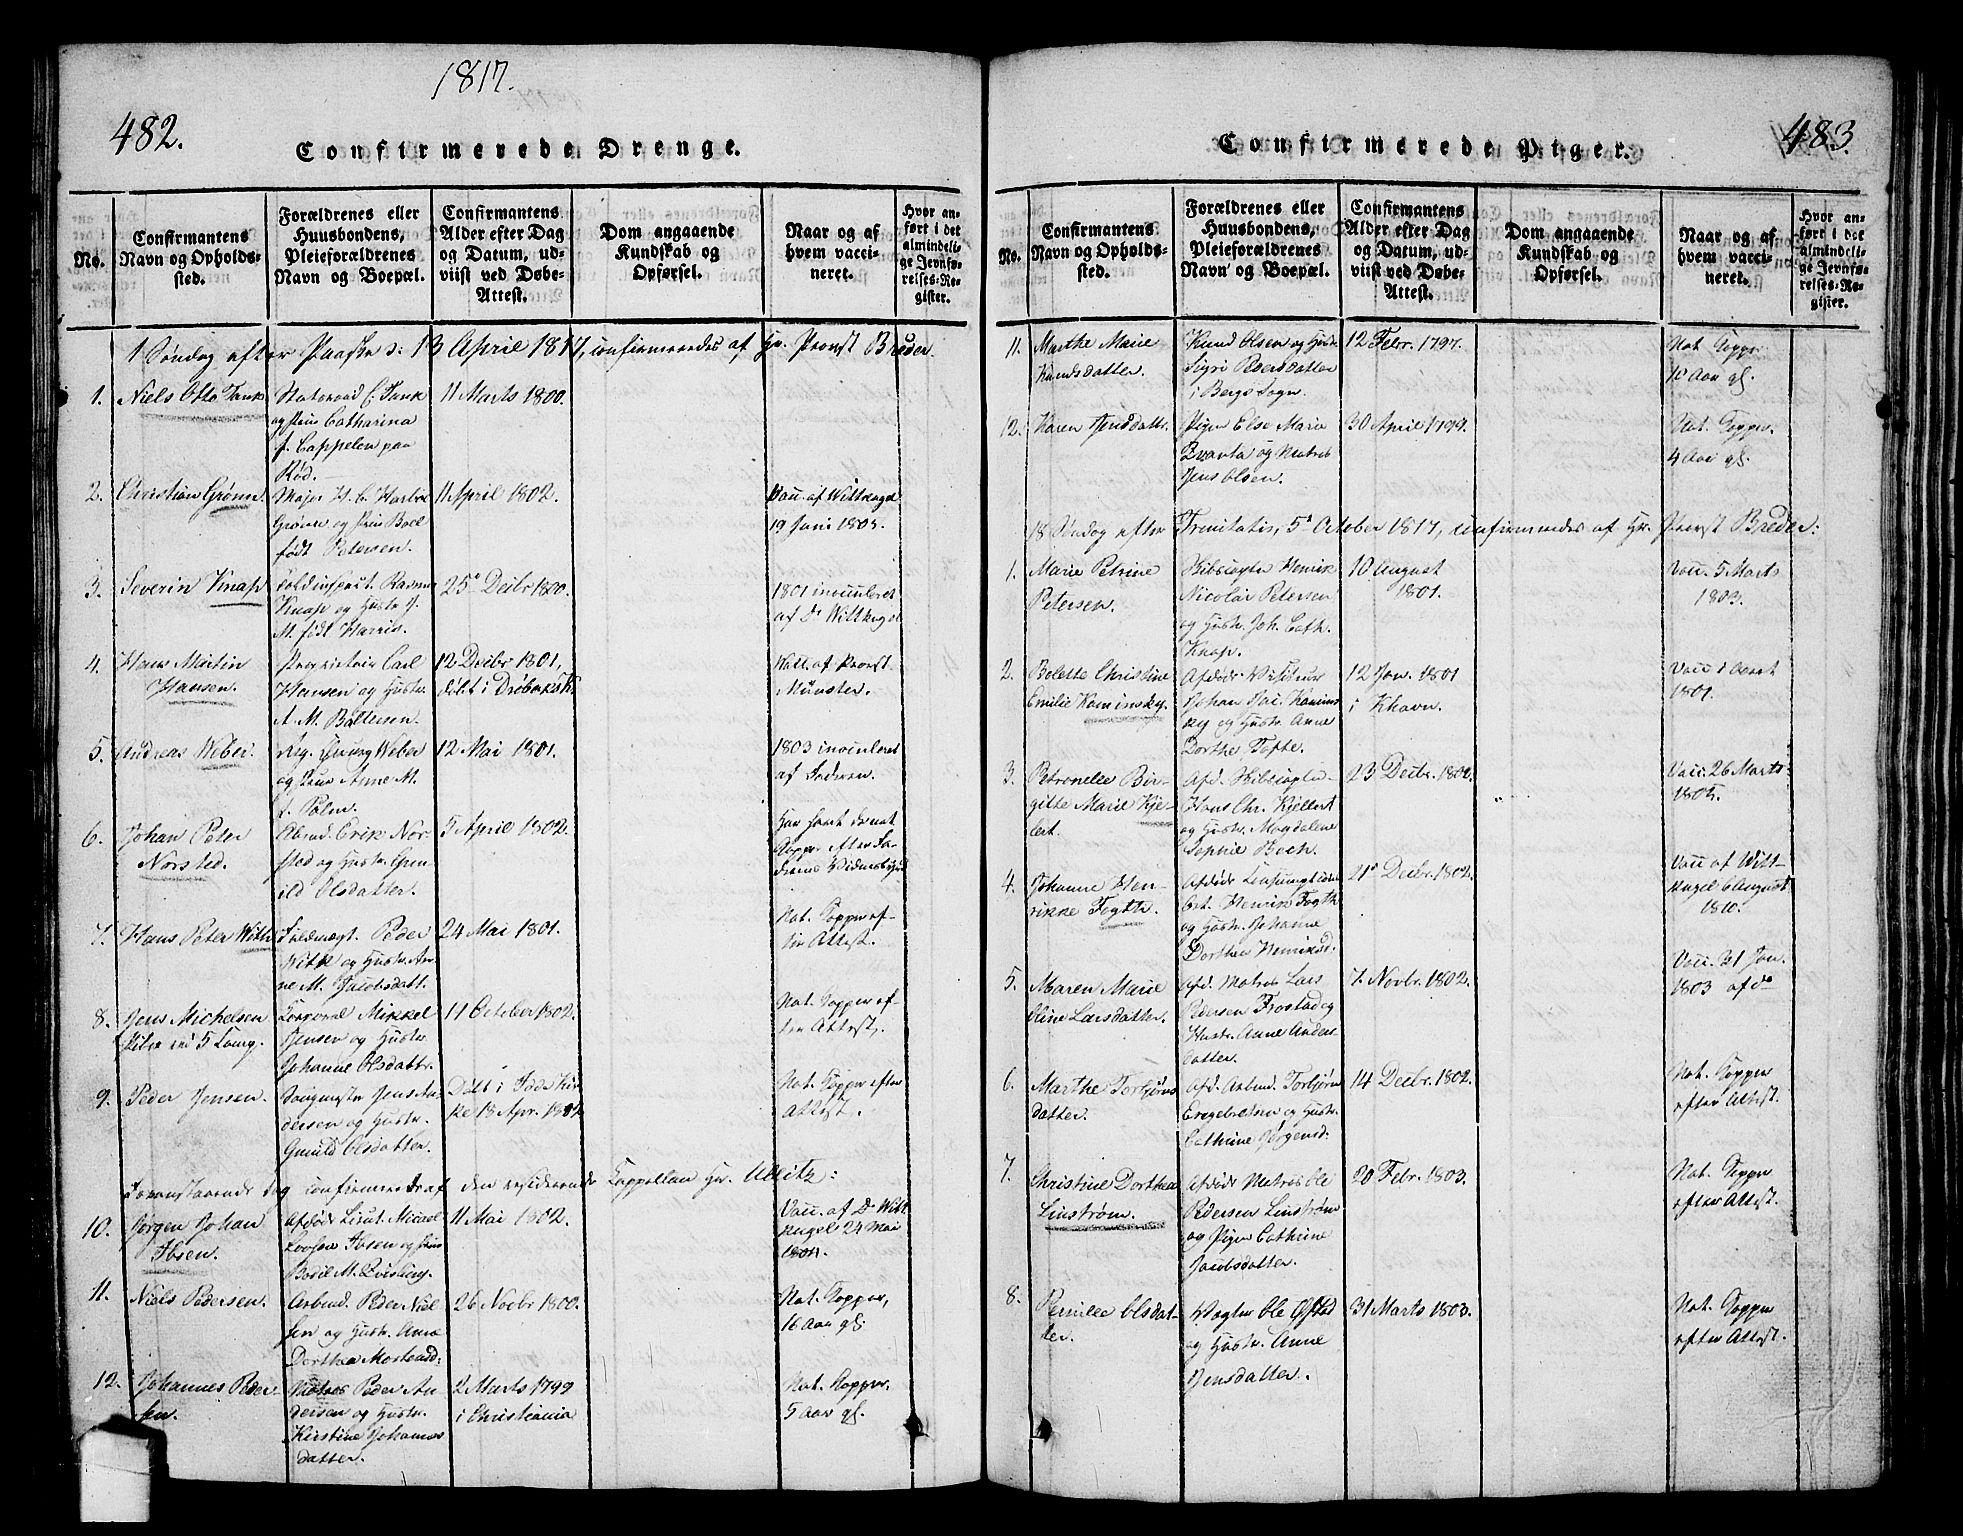 1817.
482.
Confirmerede Drenge.
No.
Confirmantens Navn og Opholds-sted.
Forældrenes eller Huusbondens, Pleieforældrenes Navn og Boepæl.
Confirmantens Alder efter Dag og Datum, ud-viist ved Døbe-Attest.
Dom angaaende Kundskab og Opførsel.
Naar og af hvem vacci-neret.
Hvor an-ført i det almindeli-ge Jevnfø-relses-Re-gister.
1 Søndag efter Paaske 13 April 1817, confirmeredes af Hr. Provst Breder.
1. Niels Otto Tank
Statsraad C. Tank
og Frue Catharina
f. Cappelen paa
Rød.
11 Marts 1800.
2. Christian Grønn.
Major H. C.
Grønn og Frue Boel
født Petersen.
11 April 1802.
Vacc. af Wittkugel
19 Juni 1803.
3. Severin Knap
Toldinspect. Rasmus
Knap og Hustr.
M. født Harris.
25 Decbr 1800.
1801 inoculeret
af Dr Wittkugel
4. Hans Martin
Hansen.
Proprietair Carl
Hansen og Hustr.
A. M. Boltersen.
12 Decbr 1801,
døbt i
Vacc. af Provst
Münster.
5. Andreas Weber.
Reg. Weber
og Frue Anne M.
f. Palm.
12 Mai 1801.
1803 inoculeret
af Faderen.
6. Johan Peter
Norsted.
Arbmd. Erik Nor-
sted og Hustr. Gun-
ild Olsdatter.
5 April 1802.
Har havt de nat.
Kopper efter Fa-
derens Vidnesbyrd
7. Hans Peter With
Peder
Witt og Hustr. An-
ne M. Jacobsdatt.
24 Mai 1801.
Nat. Kopper ef-
ter Attest.
8. Jens Michelsen
Corporal Mikkel
Jensen og Hustr.
Johanne Olsdattr.
11 October 1802.
Nat. Kopper ef-
ter Attest.
9. Peder Jensen.
Jens An-
dersen og Hustr.
Gunild Olsdatter.
Døbt i
ke 18 Apr. 1802
Nat. Kopper efter
Attest.
Foranstaaende Dag confirmerede af den residerende Cappellan Hr.
10. Jørgen Johan
Ibsen.
Afdøde Lieut.
Ibsen og Frue
Bodil M.
11 Mai 1802.
Vacc. af Dr Witt-
kugel 24 Mai
11. Niels Pedersen.
Arbmd. Peder Niel-
sen og Hustr. Anne
Dorthea Mortensd:
26 Novbr 1800.
Nat. Kopper,
12. Johannes Peder-
sen.
Matros Peder An-
dersen og Hustr.
Kirstine Johannes-
datter.
2 Marts 1799
i Christiania
Nat. Kopper,
5 Aar gl.
483.
Confirmerede Piger.
No.
Confirmantens Navn og Opholds-sted.
Forældrenes eller Huusbondens, Pleieforældrenes Navn og Boepæl.
Confirmantens Alder efter Dag og Datum, ud-viist ved Døbe-Attest.
Dom angaaende Kundskab og Opførsel.
Naar og af hvem vacci-neret.
Hvor an-ført i det almindeli-ge Jevnfø-relses-Re-gister.
11. Marthe Marie
Knudsdatter.
Knud Olsen og Hustr.
Sigri Pedersdatter
i Bergs Sogn.
12 Febr. 1797.
Nat. Kopper
10 Aar gl.
12. Karen Jensdattr.
Pigen Else Marie
og Matros
Jens Olsen.
30 April 1799.
Nat. Kopper.
4 Aar gl.
18 Søndag efter Trinitatis, 5 October 1817, confirmeredes af Hr. Provst Breder:
1. Marie Petrine
Petersen.
Skibscaptn Henrik
Nicolai Petersen
og Hustr. Joh. Cath.
Knap.
10 August
1801.
Vacc. 5 Marts
1803.
2. Bolette Christine
Emilie Kaminsky.
Afdøde Visiteur
Johan Kamins-
ky og Hustr. Anne
Dorthe Tofte.
12 Jan. 1801
i Khavn.
3. Petronelle Bir-
gitte Marie Kjel-
lert.
Afd. Skibscaptn
Hans Chr. Kjellert
og Hustr. Magdalene
Sophie Boch.
23 Decbr. 1802.
Vacc. 26 Marts
4. Johanne Hen-
rikke Fogth.
Afdøde
Henrik Fogth
og Hustr. Johanne
Dorthea Henriksd.
21 Decbr. 1802.
Vacc af Witt-
kugel 6 August
1810.
5. Maren Marie
Oline Larsdatter.
Afd. Matros Lars
Pedersen Frostad og
Hustr. Anne Anders-
datter.
7. Novbr. 1802.
Vacc. 21 Jan.
1803 af do
6. Marthe Torbjørns-
datter.
Afd. Arbmd. Torbjørn
Engebretsen og Hustr.
Cathrine Jørgensd.
14 Decbr. 1802.
Nat. Kopper
efter Attest.
7. Christine Dorthea
Linstrøm.
Afdøde Matros Ole
Pedersen Linstrøm
og Pigen Cathrine
Jacobsdatter.
20 Febr. 1803.
Nat. Kopper
efter Attest.
8. Pernille Olsdat-
ter.
Vægter Ole
og Hustr. Anne
Jensdatter.
31 Marts 1803.
Nat. Kopper
efter Attest.